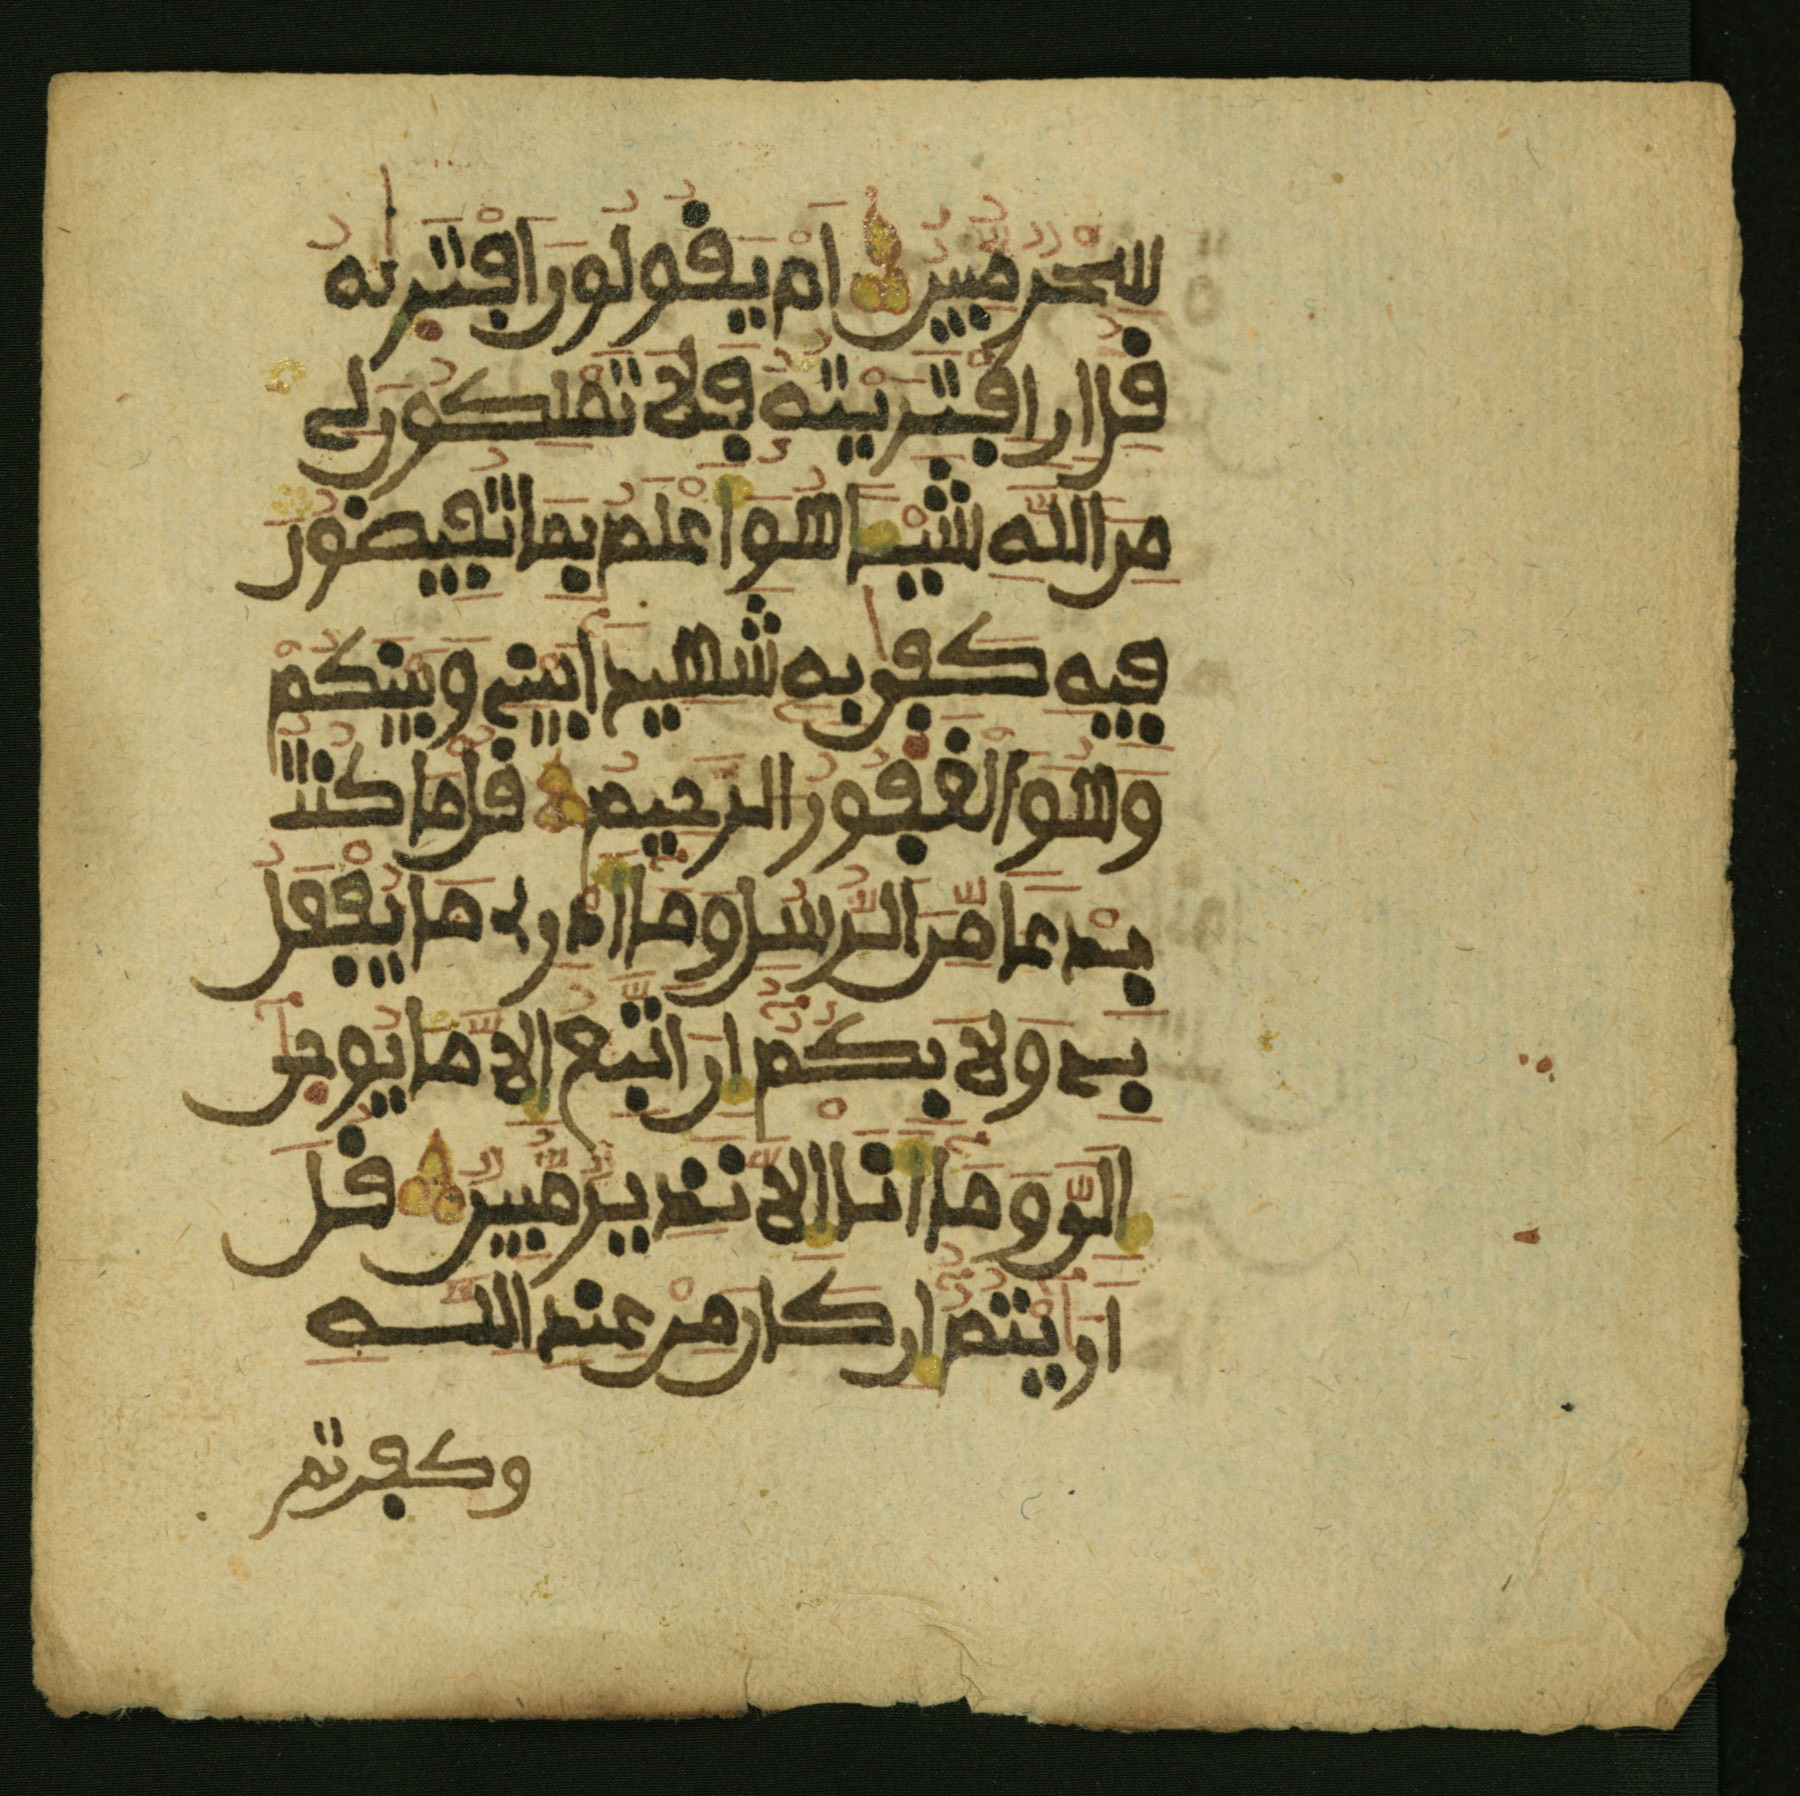 سِحْرٌ مُّبِينٌ اَمْ يَقُولُونَ اَفْتَرٜىٰهُ
قُلِ اِنِ اِفْتَرَيْتُهُۥ فَلَا تَمْلِكُونَ لِے
مِنَ اَللَّهِ شَيْـًٔا هُوَ أَعْلَمُ بِمَا تُفِيضُونَ
فِيهِ كَفٜىٰ بِهِۦ شَهِيداَۢ بَيْنِے وَبَيْنَكُمْ
وَهُوَ اَلْغَفُورُ اُلرَّحِيمُ قُلْ مَا كُنتُ
بِدْعاً مِّنَ اَلرُّسُلِ وَمَآ أَدْرِے مَا يُفْعَلُ
بِے وَلَا بِكُمُۥٓ إِنَ اَتَّبِعُ إِلَّا مَا يُوحٜىٰٓ
إِلَيَّ وَمَآ أَنَا إِلَّا نَذِيرٌ مُّبِينٌ قُلَ
اَرَٰٓيْتُمُۥٓ إِن كَانَ مِنْ عِندِ اِللَّهِ
وكفرتم